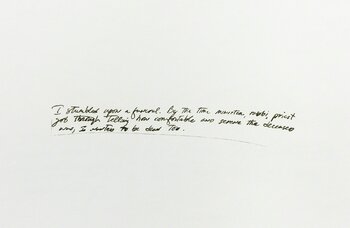 I stumbled upon a funeral. By the time minister, rabbi, priest
got through telling how comfortable and serene the deceased
was, I wanted to be dead too.